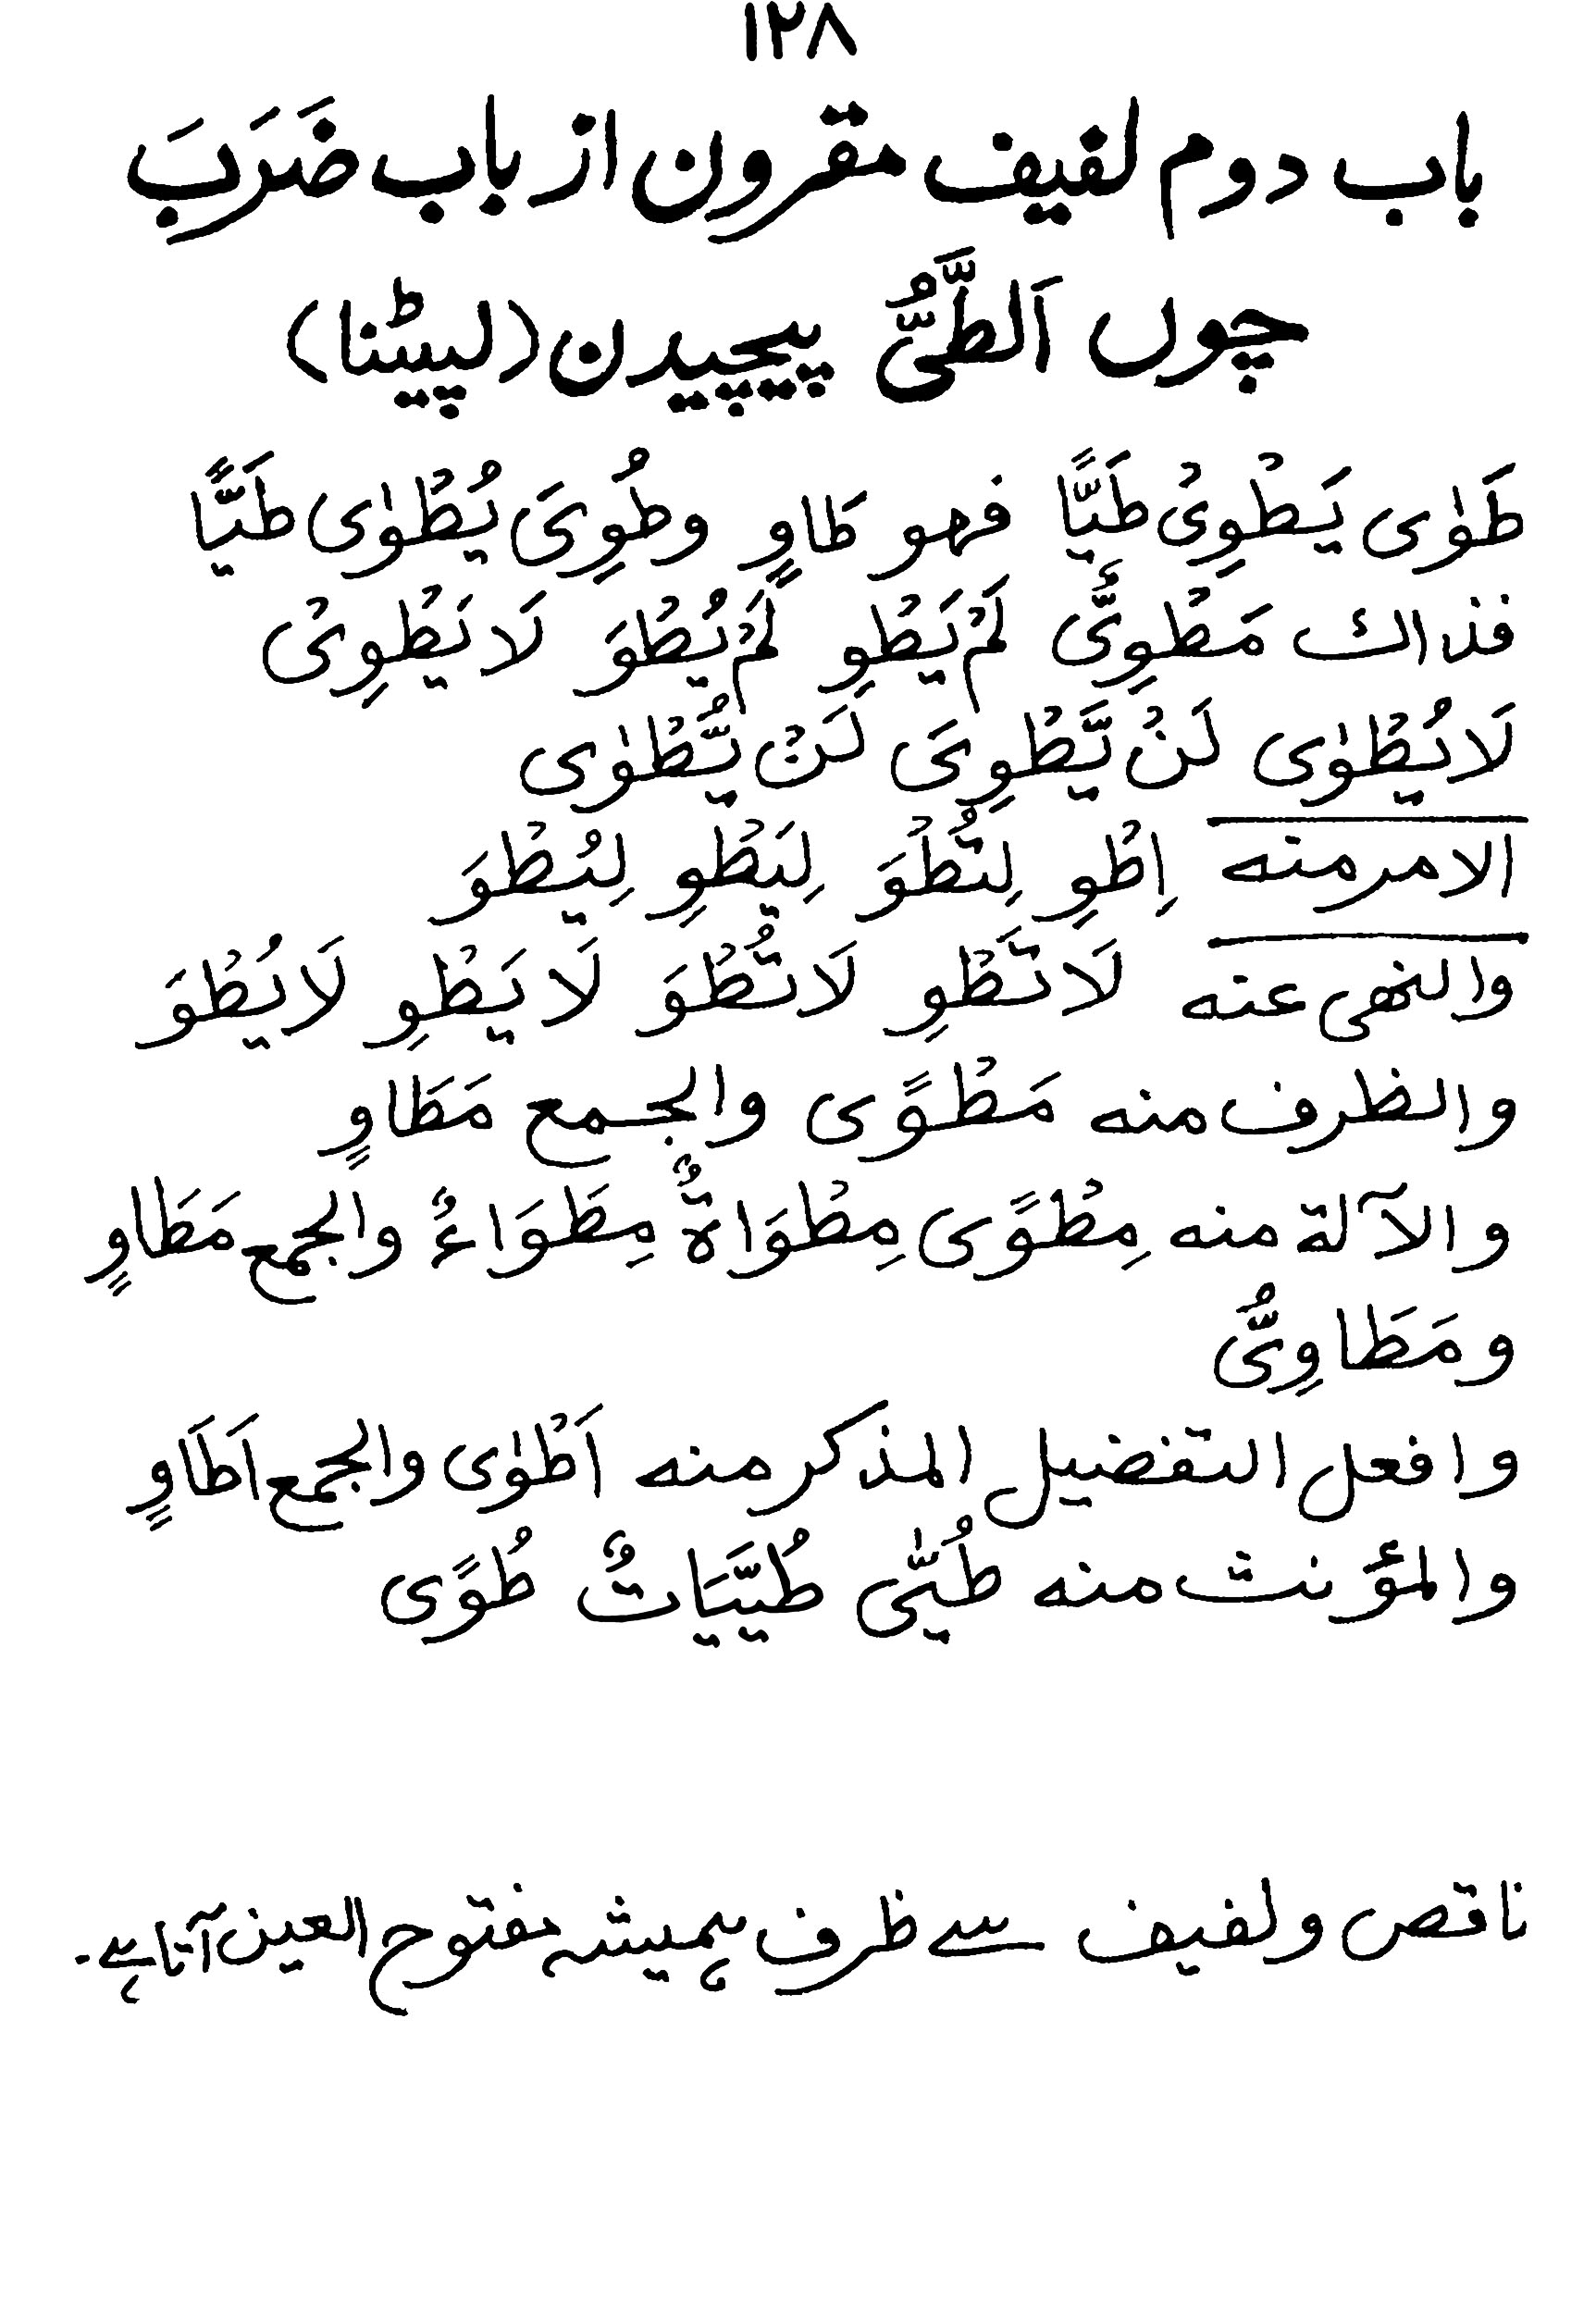 ۱۲۸
باب دوم لفیف مقرون از باب ضَرَبَ
چوں اَلطَّیُّ پیچیدن (لپیٹنا)
طَوٰی یَطْوِیْ طَیًّا فہو طَاوٍ وطُوِیَ یُطْوٰی طَیًّا
فذاك مَطْوِیٌّ لَمْ یَطْوِ لَمْ یُطْوَ لَا یَطْوِیْ
لَا یُطْوٰی لَنْ یَّطْوِیَ لَنْ یُّطْوٰی
الامر منه اِطْوِ لِتُطْوَ لِیَطْوِ لِیُطْوَ
والنهی عنه لَا تَطْوِ لَا تُطْوَ لَا یَطْوِ لَا یُطْوَ
والظرف منه مَطْوًی والجمع مَطَاوٍ
والآلة منه مِطْوًی مِطْوَاةٌ مِطْوَاءٌ والجمع مَطَاوٍ
و مَطَاوِیُّ
وافعل التفضیل المذكر منه اَطْوٰی والجمع اَطَاوٍ
والمؤنث منه طُیّٰی طُیَّیَاتٌ طُوًی
ناقص ولفیف سے ظرف ہمیشہ مفتوح العین آتا ہے۔